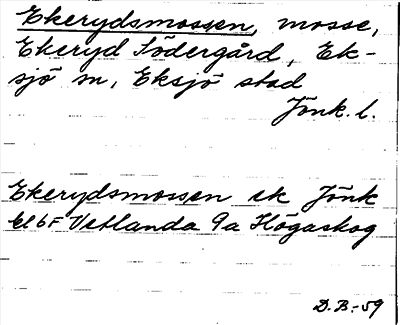 Ekerydsmossen, mosse,
Ekeryd Södergård, Ek-
sjö sn, Eksjö stad
Jönk. l.
Ekerydsmossen ek Jönk
bl 6F Vetlanda 9a Högaskog
D.B.-59